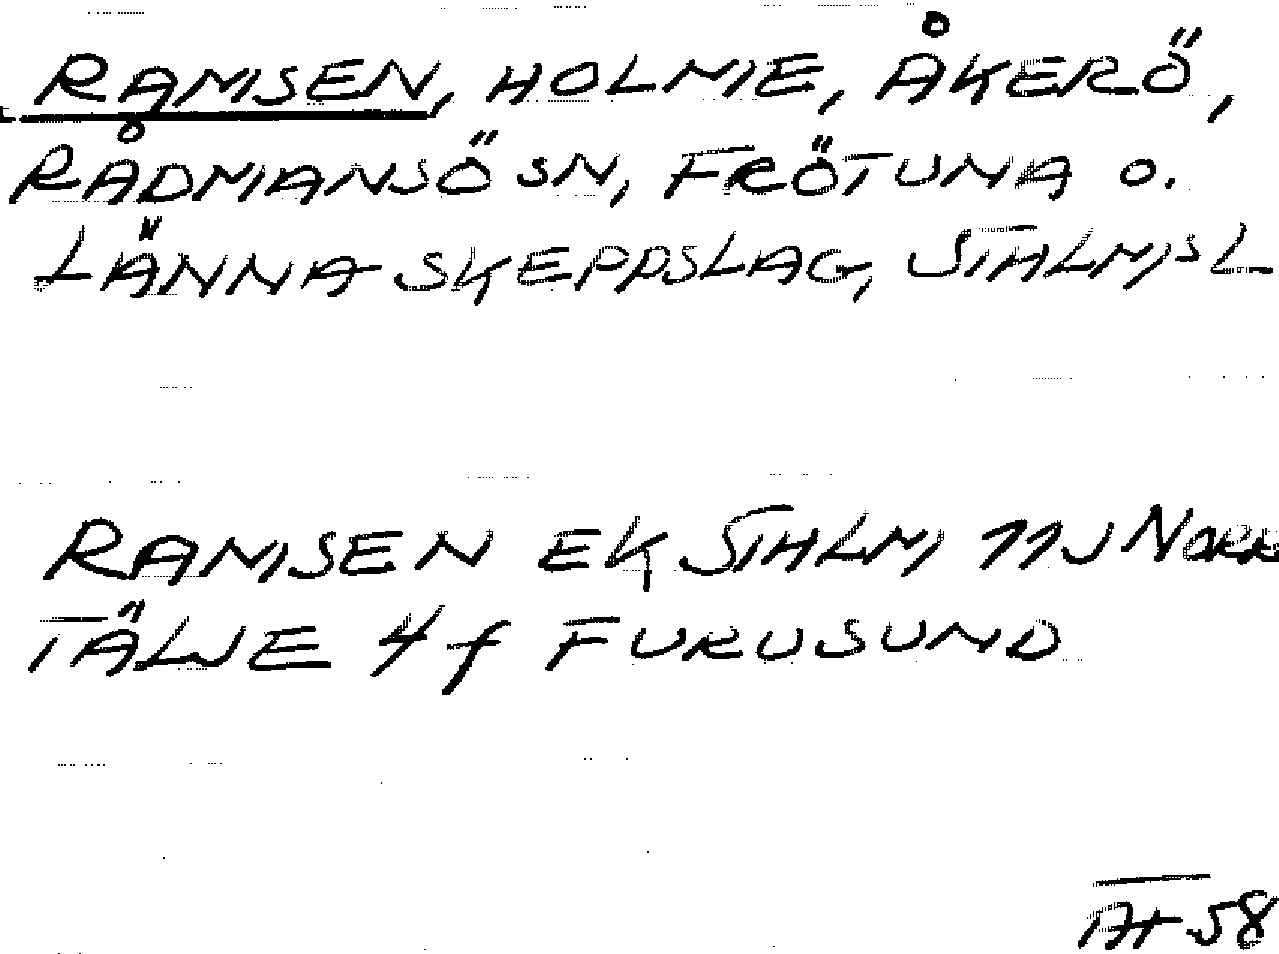 RAMSEN, HOLME, ÅKERÖ,
RÅDMANSÖ SN, FRÖTUNA O.
LÄNNA SKEPPSLAG, STHLMS L
RAMSEN EK STHLM 11J NORR
TÄLJE 4f FURUSUND
TH 58